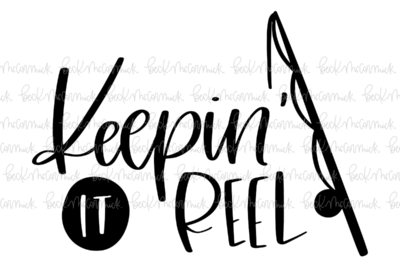 Keepin'
IT REEL